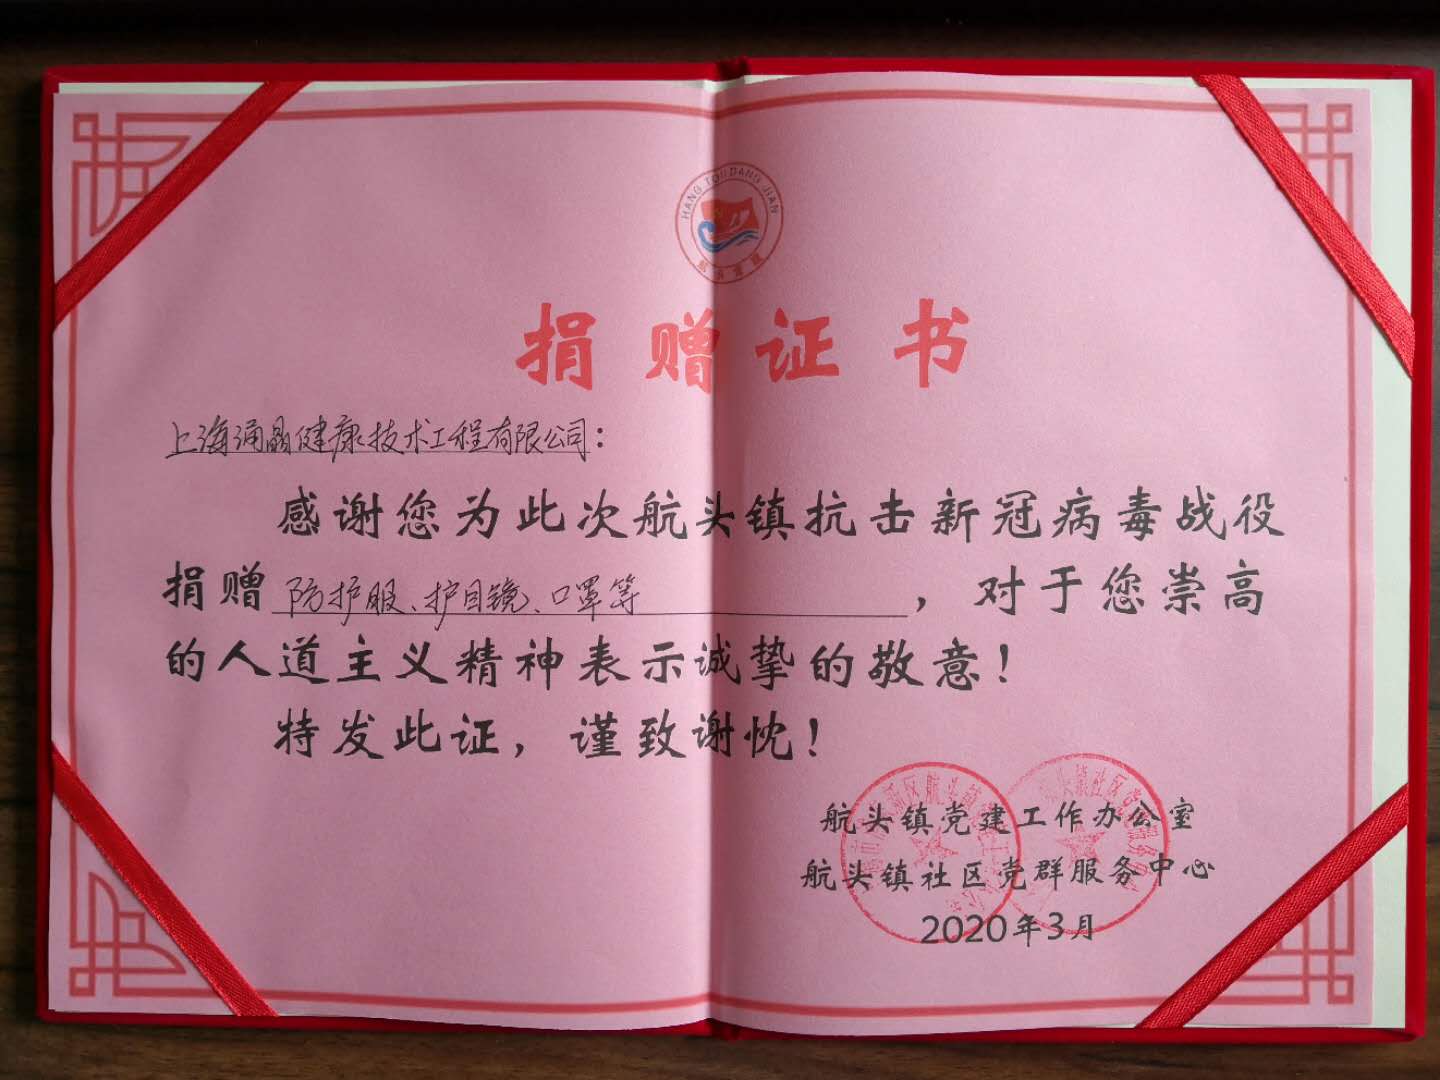 HANG TOU DANG JIAN
航头党建
捐赠证书
上海涌晶健康技术工程有限公司：
感谢您为此次航头镇抗击新冠病毒战役
捐赠防护服、护目镜、口罩等，对于您崇高
的人道主义精神表示诚挚的敬意！
特发此证，谨致谢忱！
航头镇党建工作办公室
航头镇社区党群服务中心
2020年3月